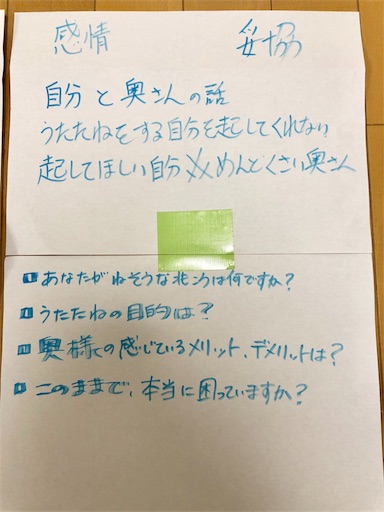 感情 妥協
自分と奥さんの話
うたたねをする自分を起してくれない
起してほしい自分 めんどくさい奥さん
あなたがねそうな は何ですか?
うたたねの目的は?
奥様の感じているメリット、デメリットは?
このままで、本当に困っていますか?